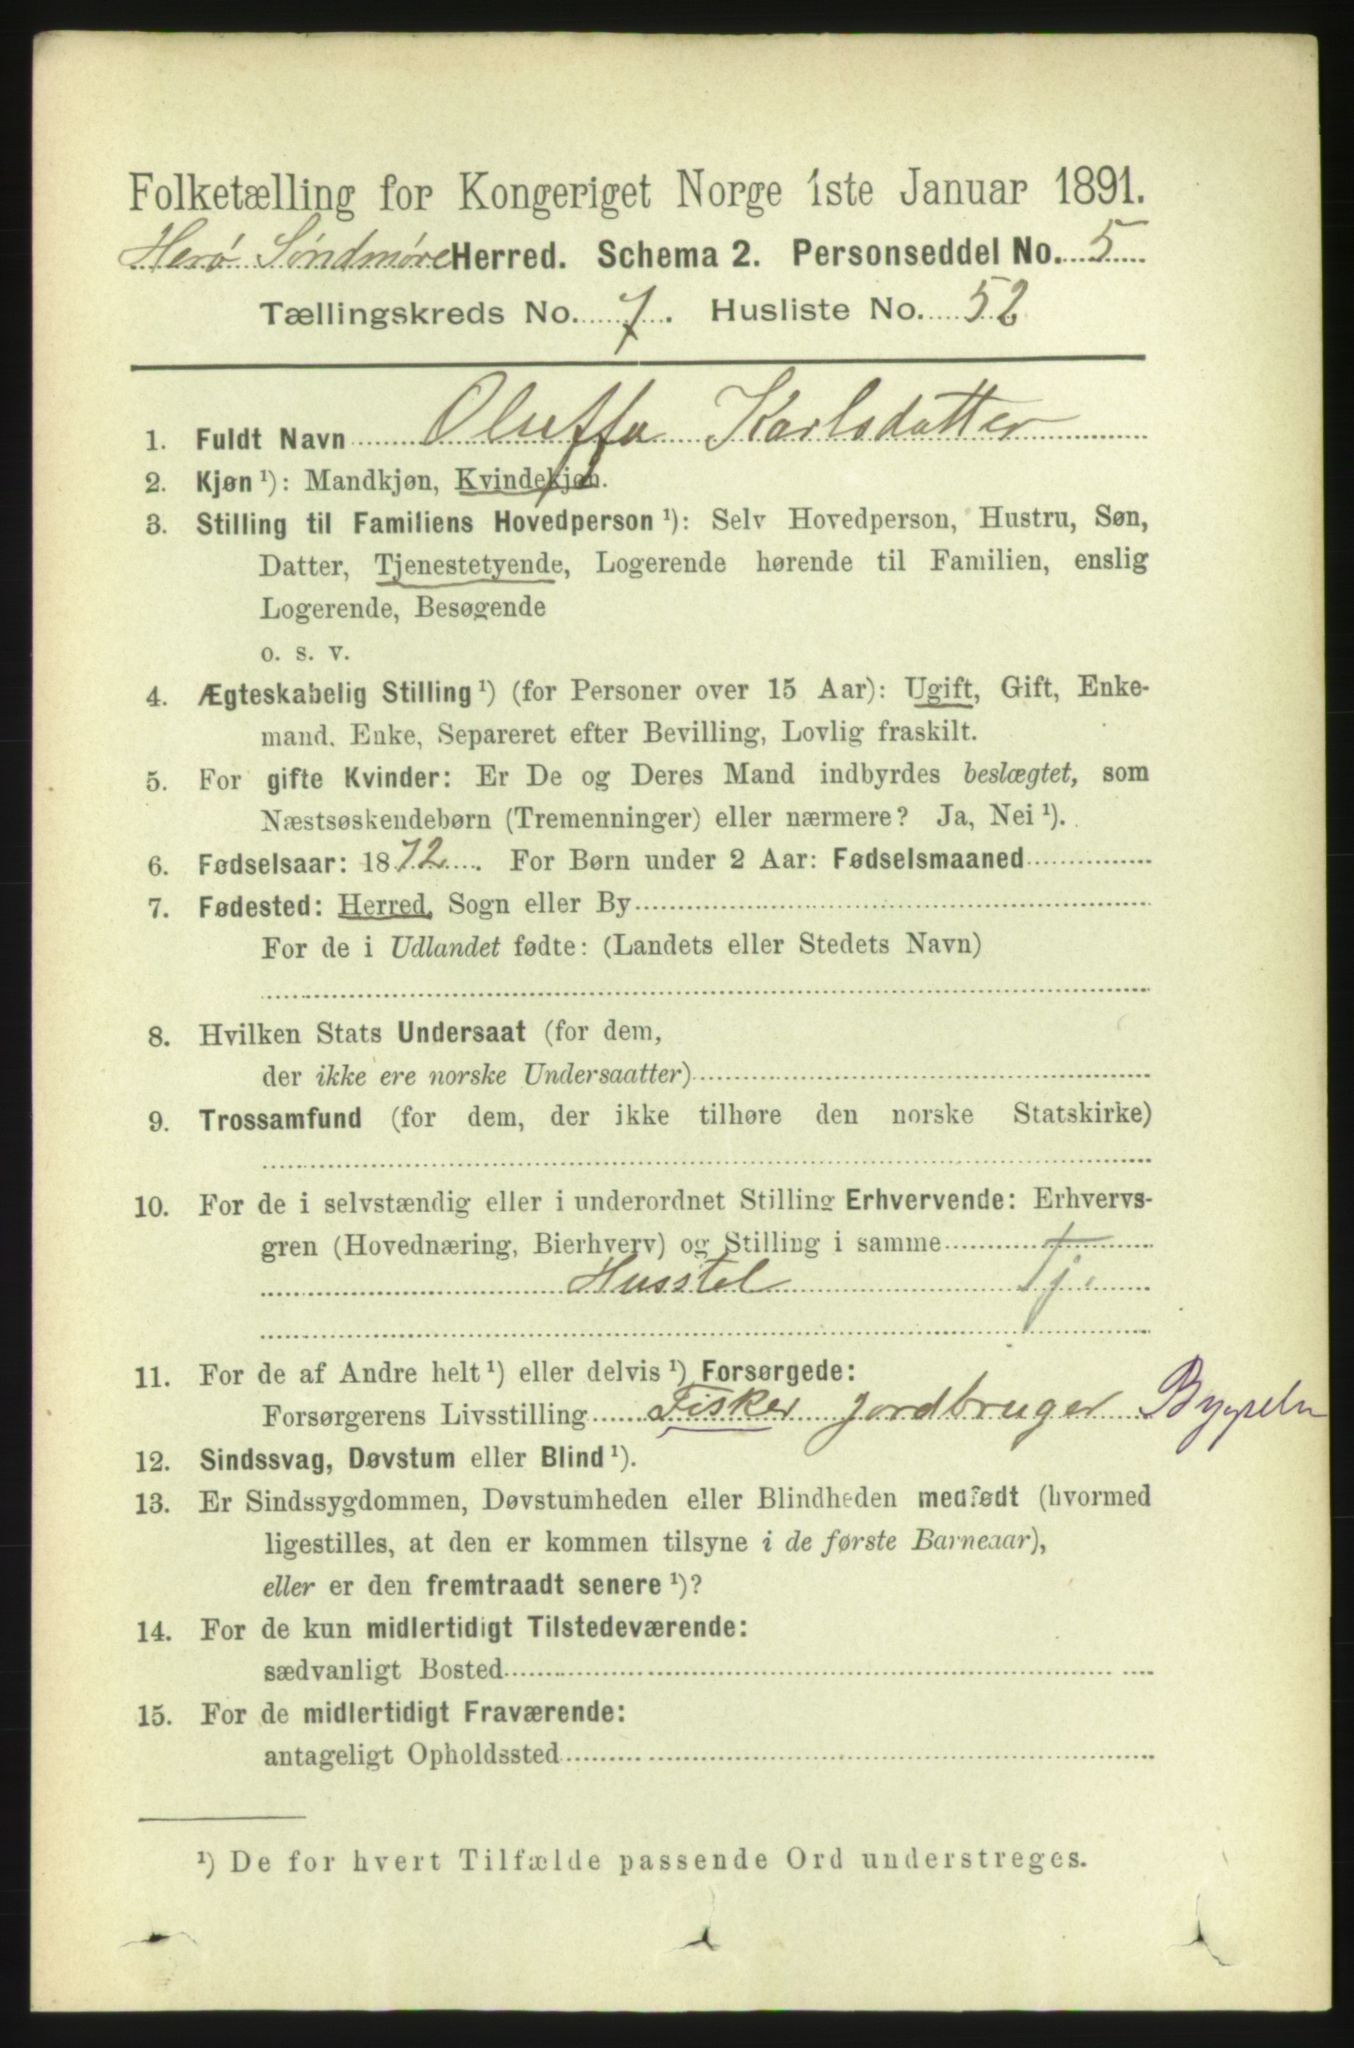 Folketælling for Kongeriget Norge 1ste Januar 1891.
Herø Søndmøre Herred. Schema 2. Personseddel No. 5
Tællingskreds No. 7. Husliste No. 52
1. Fuldt Navn Oluffa Karlsdatter
2. Kjøn ¹): Mandkjøn, Kvindekjøn.
3. Stilling til Familiens Hovedperson ¹): Selv Hovedperson, Hustru, Søn,
Datter, Tjenestetyende, Logerende hørende til Familien, enslig
Logerende, Besøgende
o. s. v.
4. Ægteskabelig Stilling ¹) (for Personer over 15 Aar): Ugift, Gift, Enke-
mand, Enke, Separeret efter Bevilling, Lovlig fraskilt.
5. For gifte Kvinder: Er De og Deres Mand indbyrdes beslægtet, som
Næstsøskendebørn (Tremenninger) eller nærmere? Ja, Nei ¹).
6. Fødselsaar: 1872. For Børn under 2 Aar: Fødselsmaaned
7. Fødested: Herred, Sogn eller By
For de i Udlandet fødte: (Landets eller Stedets Navn)
8. Hvilken Stats Undersaat (for dem,
der ikke ere norske Undersaatter)
9. Trossamfund (for dem, der ikke tilhøre den norske Statskirke)
10. For de i selvstændig eller i underordnet Stilling Erhvervende: Erhvervs-
gren (Hovednæring, Bierhverv) og Stilling i samme
Husstel Tj.
11. For de af Andre helt ¹) eller delvis ¹) Forsørgede:
Forsørgerens Livsstilling Fisker jordbruger
12. Sindssvag, Døvstum eller Blind ¹).
13. Er Sindssygdommen, Døvstumheden eller Blindheden medfødt (hvormed
ligestilles, at den er kommen tilsyne i de første Barneaar),
eller er den fremtraadt senere ¹)?
14. For de kun midlertidigt Tilstedeværende:
sædvanligt Bosted
15. For de midlertidigt Fraværende:
antageligt Opholdssted
¹) De for hvert Tilfælde passende Ord understreges.